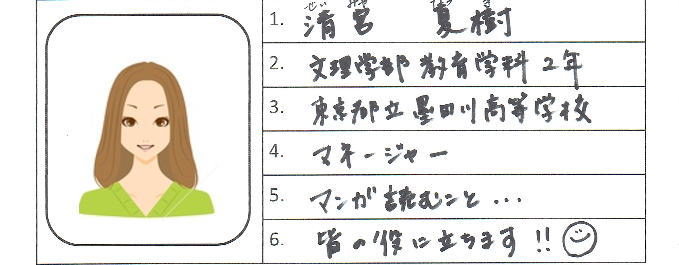 せい みや なつ き
1. 清宮 夏樹
2. 文理学部 教育学科 2年
3. 東京都立墨田川高等学校
4. マネージャー
5. マンガ読むこと...
6. 皆の役に立ちます!!